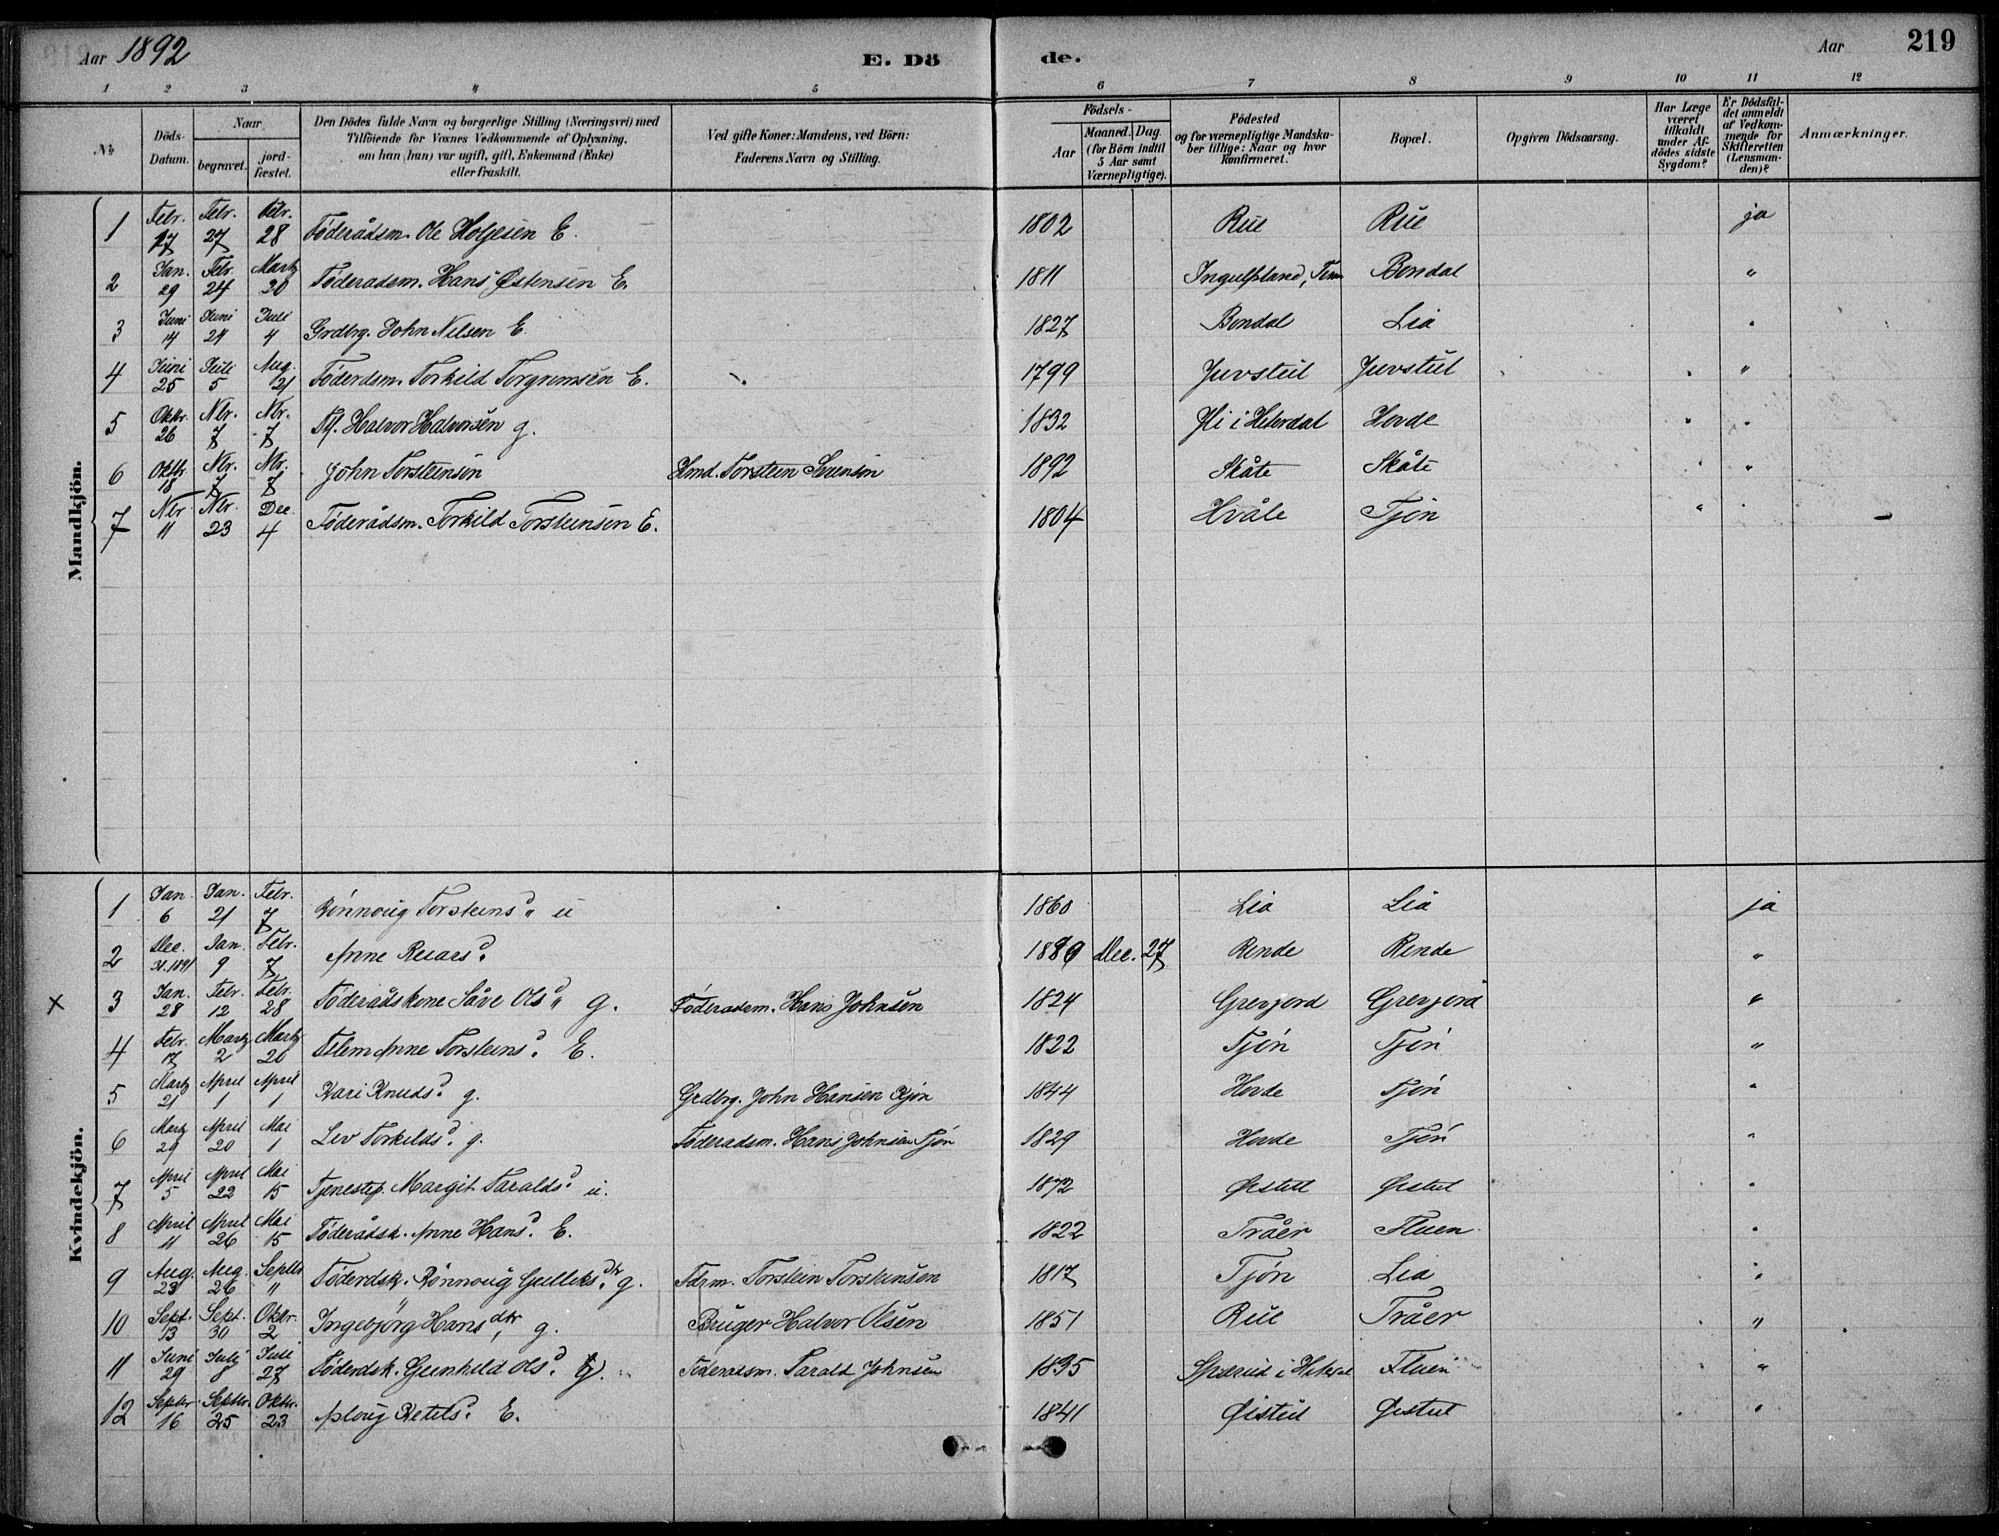 Aar 1892 E. Dö de. Aar 219
1 2 3 4 5 6 7 8 9 10 11 12
No
Döds-Datum.
Naar
begravet.
jord-fæstet.
Den Dödes fulde Navn og borgerlige Stilling (Næringsvei) med
Tilföiende for Voxnes Vedkommende af Oplysning,
om han (hun) var ugift, gift, Enkemand (Enke)
eller fraskilt.
Ved gifte Koner: Mandens, ved Börn:
Faderens Navn og Stilling.
Födsels-
Aar
Maaned. Dag.
(for Börn indtil
5 Aar samt
Værnepligtige).
Födested
og for værnepligtige Mandska-
ber tillige: Naar og hvor
Konfirmeret.
Bopæl.
Opgiven Dödsaarsag.
Har Læge
været
tilkaldt
under Af-
dödes sidste
Sygdom?
Er Dödsfal-
det anmeldt
af Vedkom-
mende for
Skifteretten
(Lensman-
den)?
Anmærkninger.
Mandkjön.
1 Febr. 17 Febr. 27 Febr. 28 Föderådsm. Ole Holjesen E. 1802 Rue Rue ja
2 Jan. 29 Febr. 24 Marts 20 Föderadsm. Hans Østensen E. 1811 Ingulfsland, Tinn Bondal "
3 Juni 14 Juni 24 Juli 4 Grdbrg. John Nilsen E 1827 Bondal Lia "
4 Juni 25 Juli 5 Aug. 21 Föderdsm. Torkild Torgrimsen E. 1799 Juvstul Juvstul "
5 Oktbr. 26 Nbr. 7 Nbr. 7 Halvor Halvorsen g. 1832 Hli i Hiterdal Hovde "
6 Oktbr. 18 Nbr. 7 Nbr. 7 John Torsteinsön Torstein 1892 Skåte Skåte "
7 Nbr. 11 Nbr. 23 Dec. 4 Föderådsm. Torkild Torsteinsen E. 1804 Hvåle Tjön "
Kvindekjön.
1 Jan. 6 Jan. 21 Febr. 7 Rönnoug Torsteinsd. u 1860 Lia Lia ja
2 Dec. 31. 1891 Jan. 9 Febr. 7 Anne Reiarsd. 1889 Dec. 27 Rende Rende "
x 3 Jan. 28 Febr. 12 Febr. 28 Föderådskone Såve Olsd. g. Föderadsm. Hans Johnsen 1824 Grevjord Grevjord "
4 Febr. 17 Marts 2 Marts 20 Anne Torsteinsd. E. 1822 Tjön Tjön "
5 Marts 21 April 1 April 1 Kari Knudsd. g. Grdbrg. John Hansen Tjön 1844 Hovde Tjön "
6 Marts 29 April 20 Mai 1 Liv Torkildsd. g. Föderadsm. Hans Johnsen Tjön 1829 Hovde Tjön "
7 April 5 April 22 Mai 15 Tjenestep. Margit Taraldsd. u. 1872 Østul Østul "
8 April 11 April 26 Mai 15 Föderådsk. Anne Hansd. E. 1822 Tråer Fluen "
9 Aug. 23 Aug. 26 Septbr " Föderdsk. Rönnoug Gulleksdtr. g. Fdrm. Torstein Torsteinsen 1817 Tjön Lia "
10 Sept. 13 Sept. 30 Oktbr. 2 Ingebjörg Hansdtr, g. Bruger Halvor Olsen 1851 Rue Tråer "
11 Juni 29 Juli 8 Juli 27 Föderdsk. Gunhild Olsd. g. Föderadsm. Tarald Johnsen 1835 i Hiterdal Fluen "
12 Septbr. 16 Septbr. 25 Oktbr. 23 Aploug Ketilsd. E. 1841 Øistul Østul "